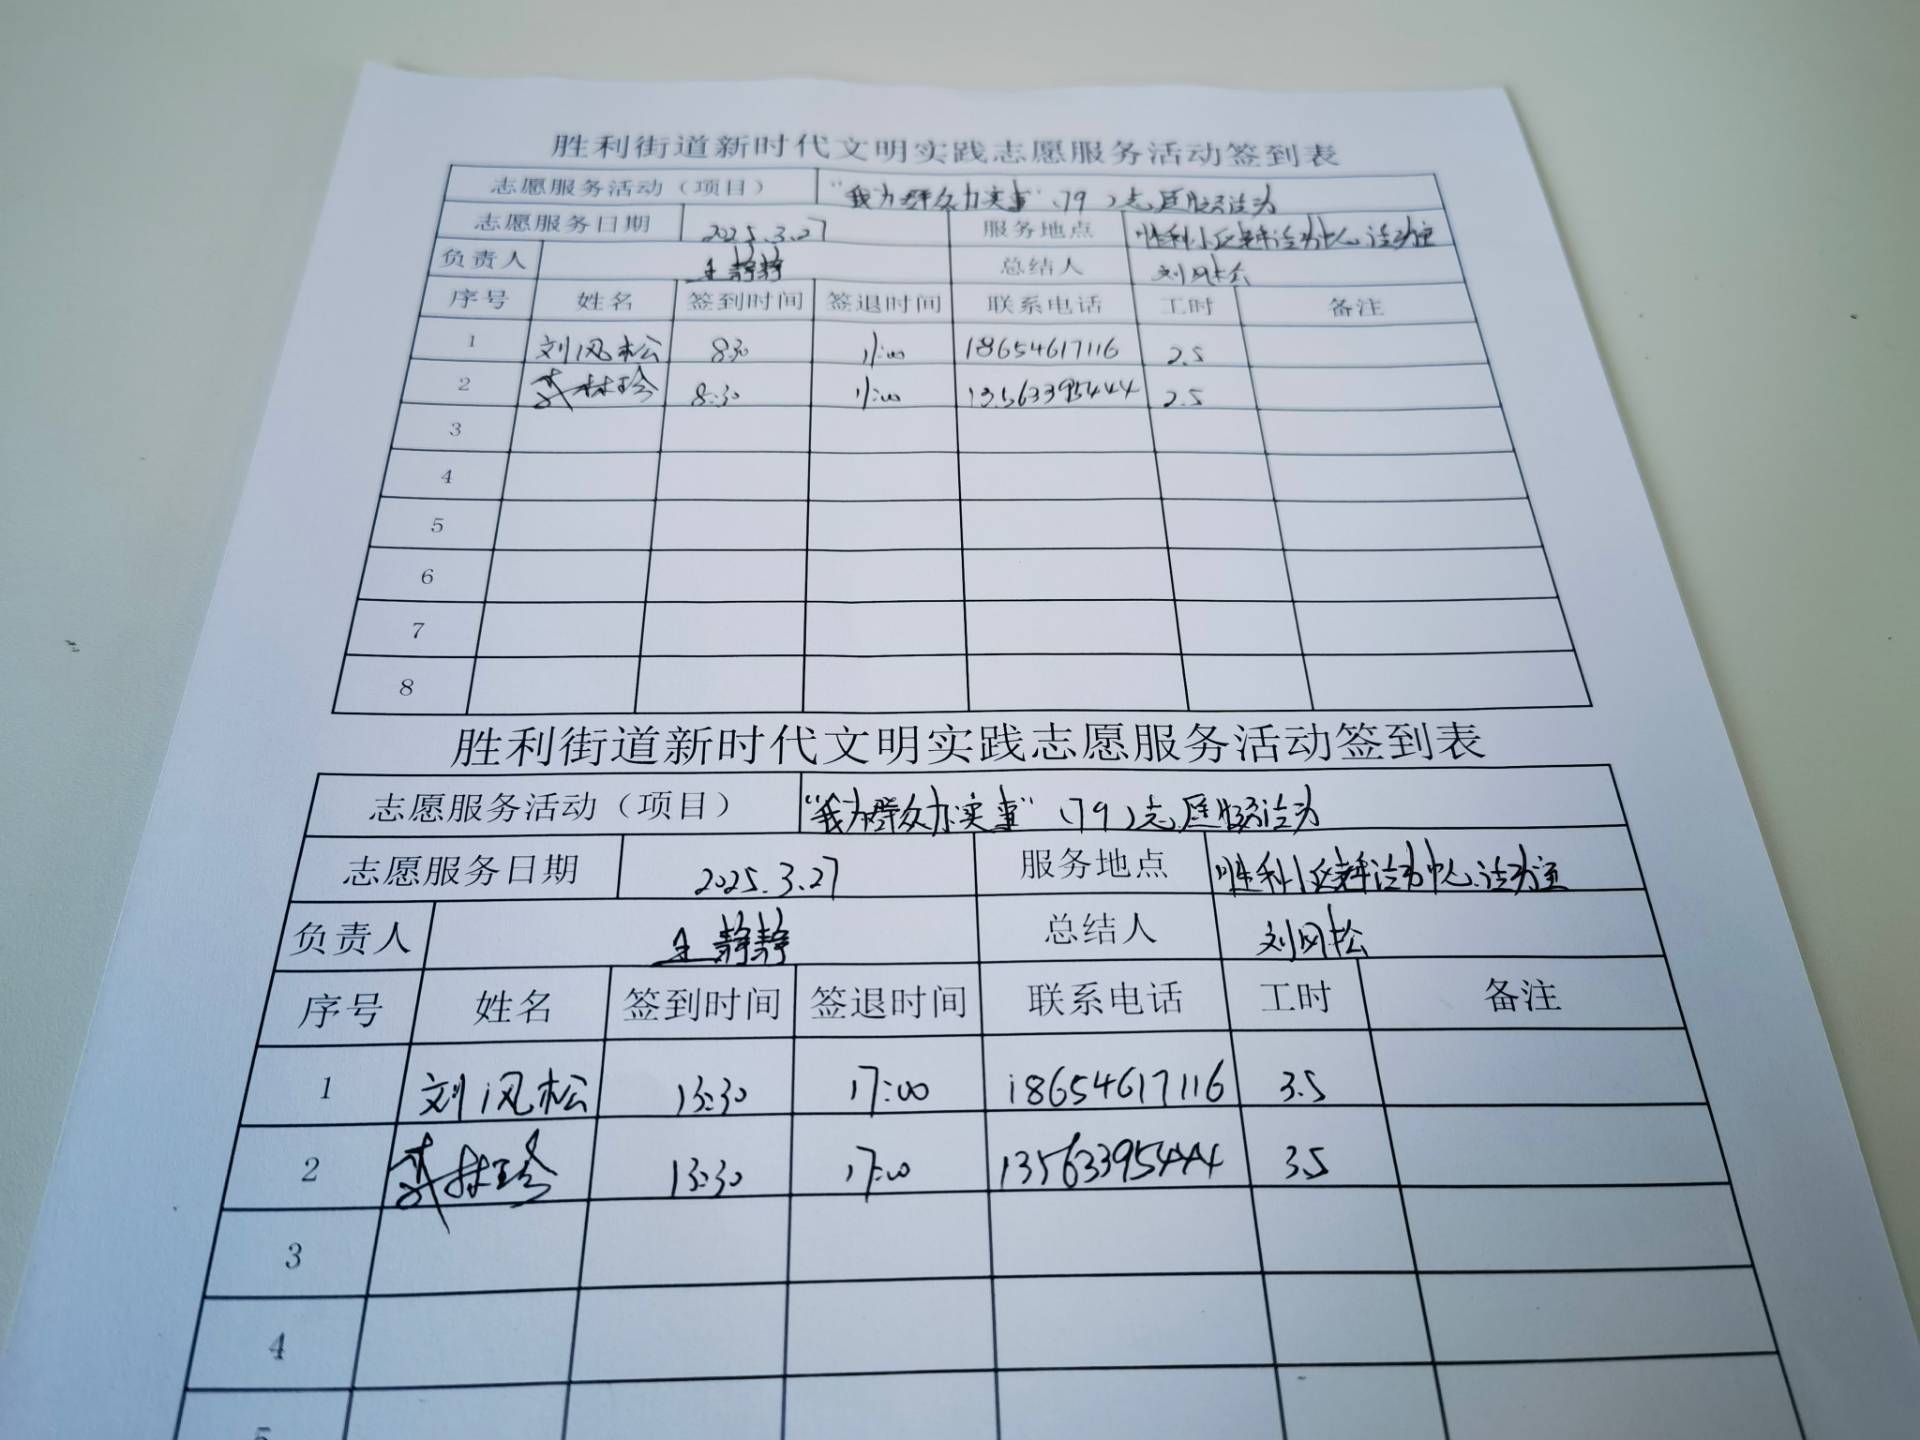 胜利街道新时代文明实践志愿服务活动签到表
志愿服务活动（项目） “我为群众办实事”（79）志愿服务活动
志愿服务日期 2025.3.27 服务地点 胜利小区老年活动中心活动室
负责人 王静静 总结人 刘风松
序号 姓名 签到时间 签退时间 联系电话 工时 备注
1 刘风松 8:30 11:00 18654617116 2.5
2 林珍 8:30 11:00 13563395444 2.5
3
4
5
6
7
8
胜利街道新时代文明实践志愿服务活动签到表
志愿服务活动（项目） “我为群众办实事”（79）志愿服务活动
志愿服务日期 2025.3.27 服务地点 胜利小区老年活动中心活动室
负责人 王静静 总结人 刘风松
序号 姓名 签到时间 签退时间 联系电话 工时 备注
1 刘风松 13:30 17:00 18654617116 3.5
2 林珍 13:30 17:00 13563395444 3.5
3
4
5